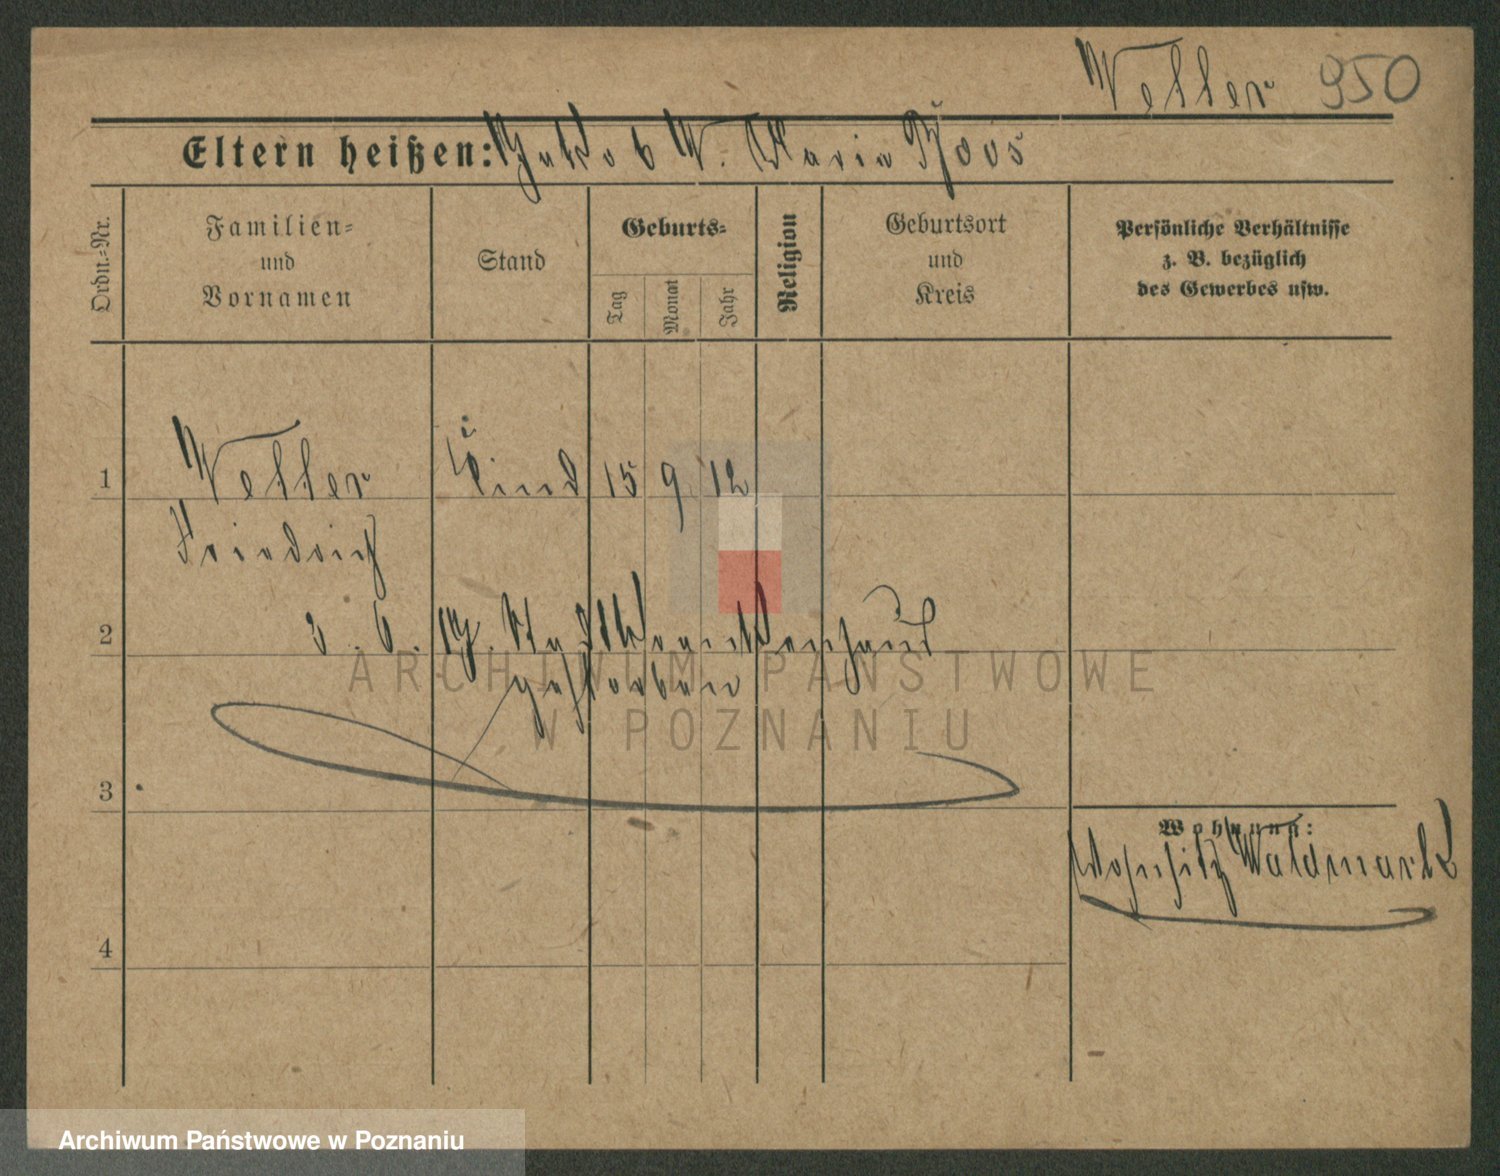 Weller 950
Eltern heißen: Jakob W. Maria Roos
Ordn.-Nr.
Familien-
und
Vornamen
Stand
Geburts-
Tag
Monat
Jahr
Religion
Geburtsort
und
Kreis
Persönliche Verhältnisse
z. B. bezüglich
des Gewerbes usw.
1 Weller Kind 15 9 12
Friedrich
2 3. 6. 17. Stadtkrankenhaus
gestorben
3
Wohnung:
Wohnsitz Waldmark
4
ARCHIWUM PAŃSTWOWE
W POZNANIU
Archiwum Państwowe w Poznaniu